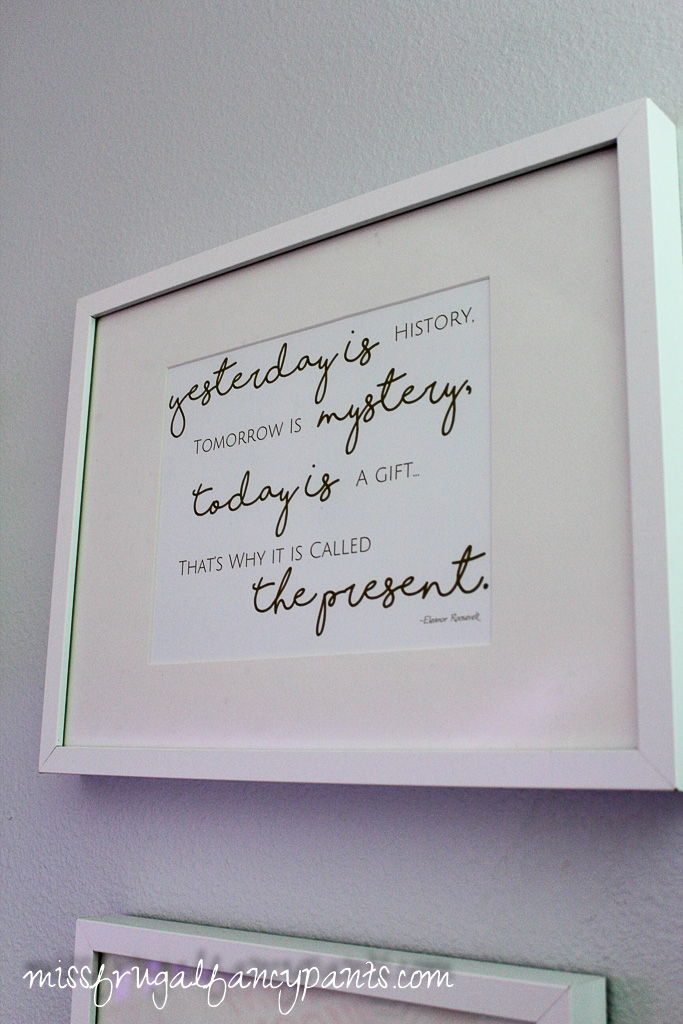 yesterday is HISTORY,
TOMORROW IS mystery,
today is A GIFT...
THAT'S WHY IT IS CALLED
the present.
-Eleanor Roosevelt
missfrugalfancypants.com